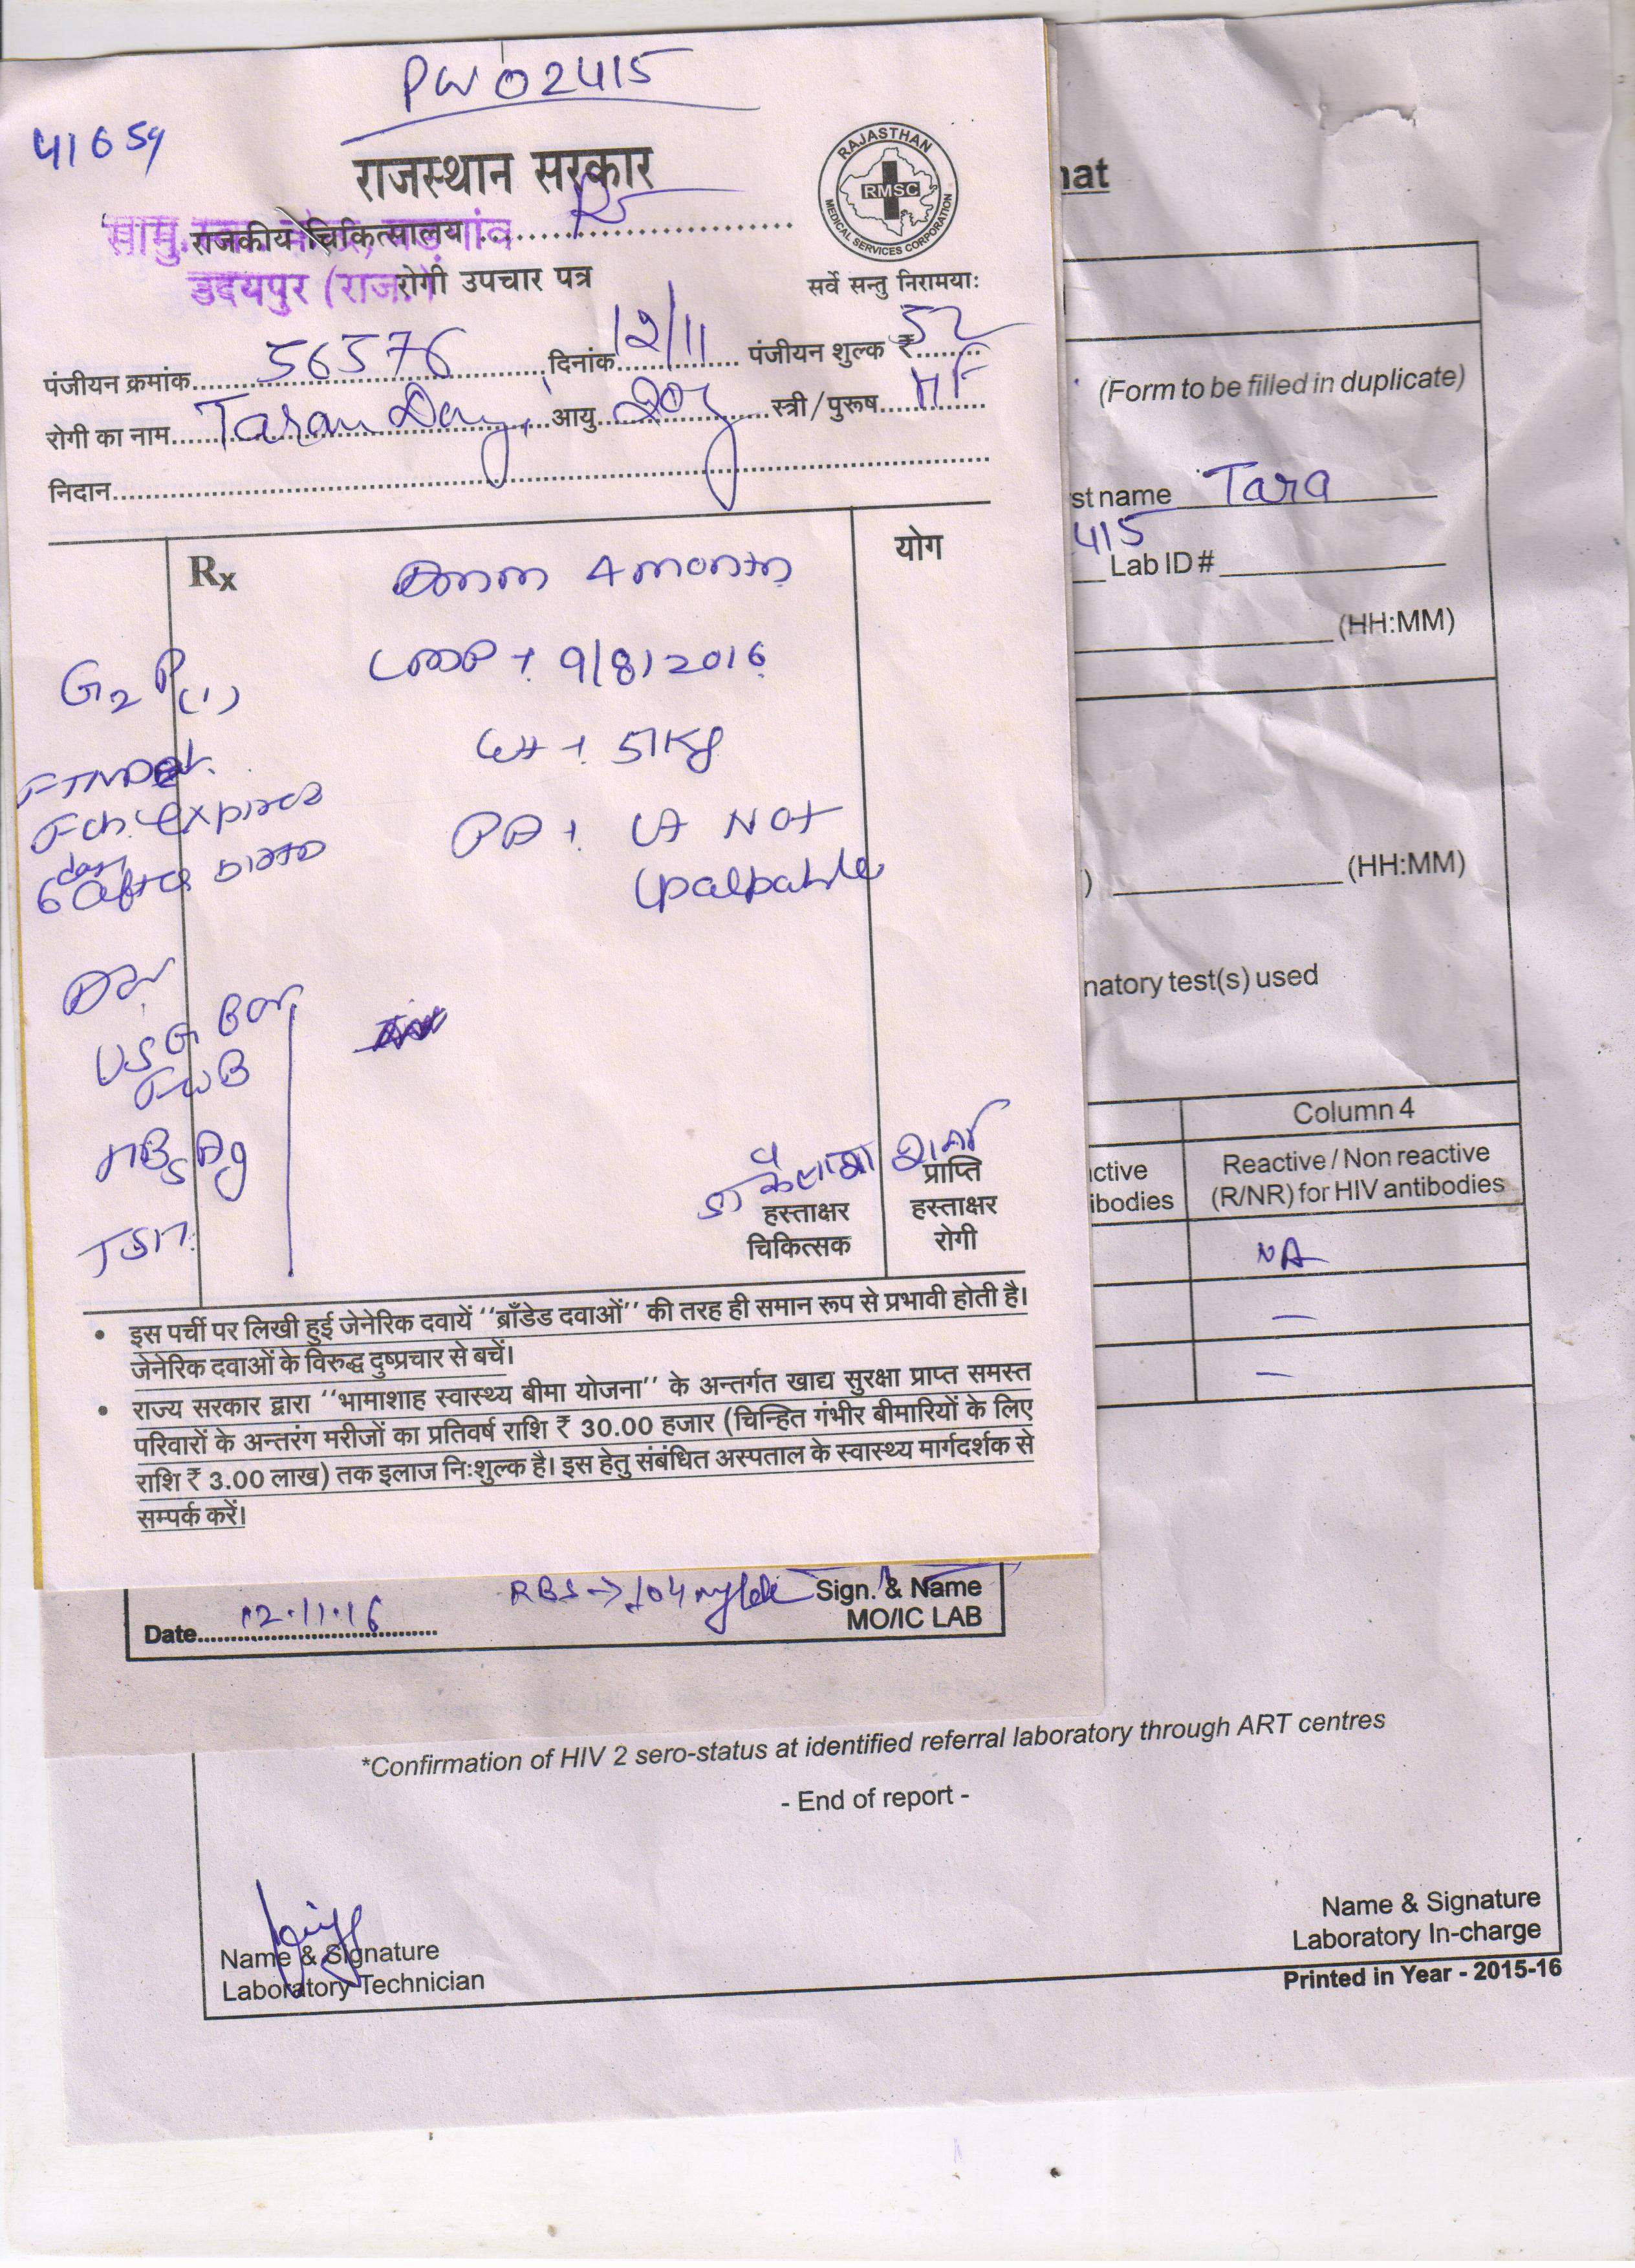 PW 02415
41659
राजस्थान सरकार
RAJASTHAN
RMSC
MEDICAL SERVICES CORPORATION
राजकीय चिकित्सालय
उदयपुर (राज.)
रोगी उपचार पत्र
सर्वे सन्तु निरामयाः
पंजीयन क्रमांक 56576 दिनांक 12/11 पंजीयन शुल्क ₹
रोगी का नाम आयु स्त्री / पुरूष
निदान
Rx 4 month
योग
LMP : 9/8/2016
G2 P(1)
Wt : 51Kg
FTND
Fch. expired
6 day after birth
PA : Ut Not
palpable
USG for
FWB
HBsAg
TSH
डॉ कैलाश शर्मा
हस्ताक्षर
चिकित्सक
प्राप्ति
हस्ताक्षर
रोगी
• इस पर्ची पर लिखी हुई जेनेरिक दवायें ''ब्राँडेड दवाओं'' की तरह ही समान रूप से प्रभावी होती है।
जेनेरिक दवाओं के विरुद्ध दुष्प्रचार से बचें।
• राज्य सरकार द्वारा ''भामाशाह स्वास्थ्य बीमा योजना'' के अन्तर्गत खाद्य सुरक्षा प्राप्त समस्त
परिवारों के अन्तरंग मरीजों का प्रतिवर्ष राशि ₹ 30.00 हजार (चिन्हित गंभीर बीमारियों के लिए
राशि ₹ 3.00 लाख) तक इलाज निःशुल्क है। इस हेतु संबंधित अस्पताल के स्वास्थ्य मार्गदर्शक से
सम्पर्क करें।
RBS → 104 mg/dl Sign. & Name
Date 12.11.16 MO/IC LAB
nat
(Form to be filled in duplicate)
st name Tara
415
Lab ID #
(HH:MM)
) (HH:MM)
natory test(s) used
Column 4
ctive
ibodies
Reactive / Non reactive
(R/NR) for HIV antibodies
NA
—
—
*Confirmation of HIV 2 sero-status at identified referral laboratory through ART centres
- End of report -
Name & Signature
Laboratory Technician
Name & Signature
Laboratory In-charge
Printed in Year - 2015-16